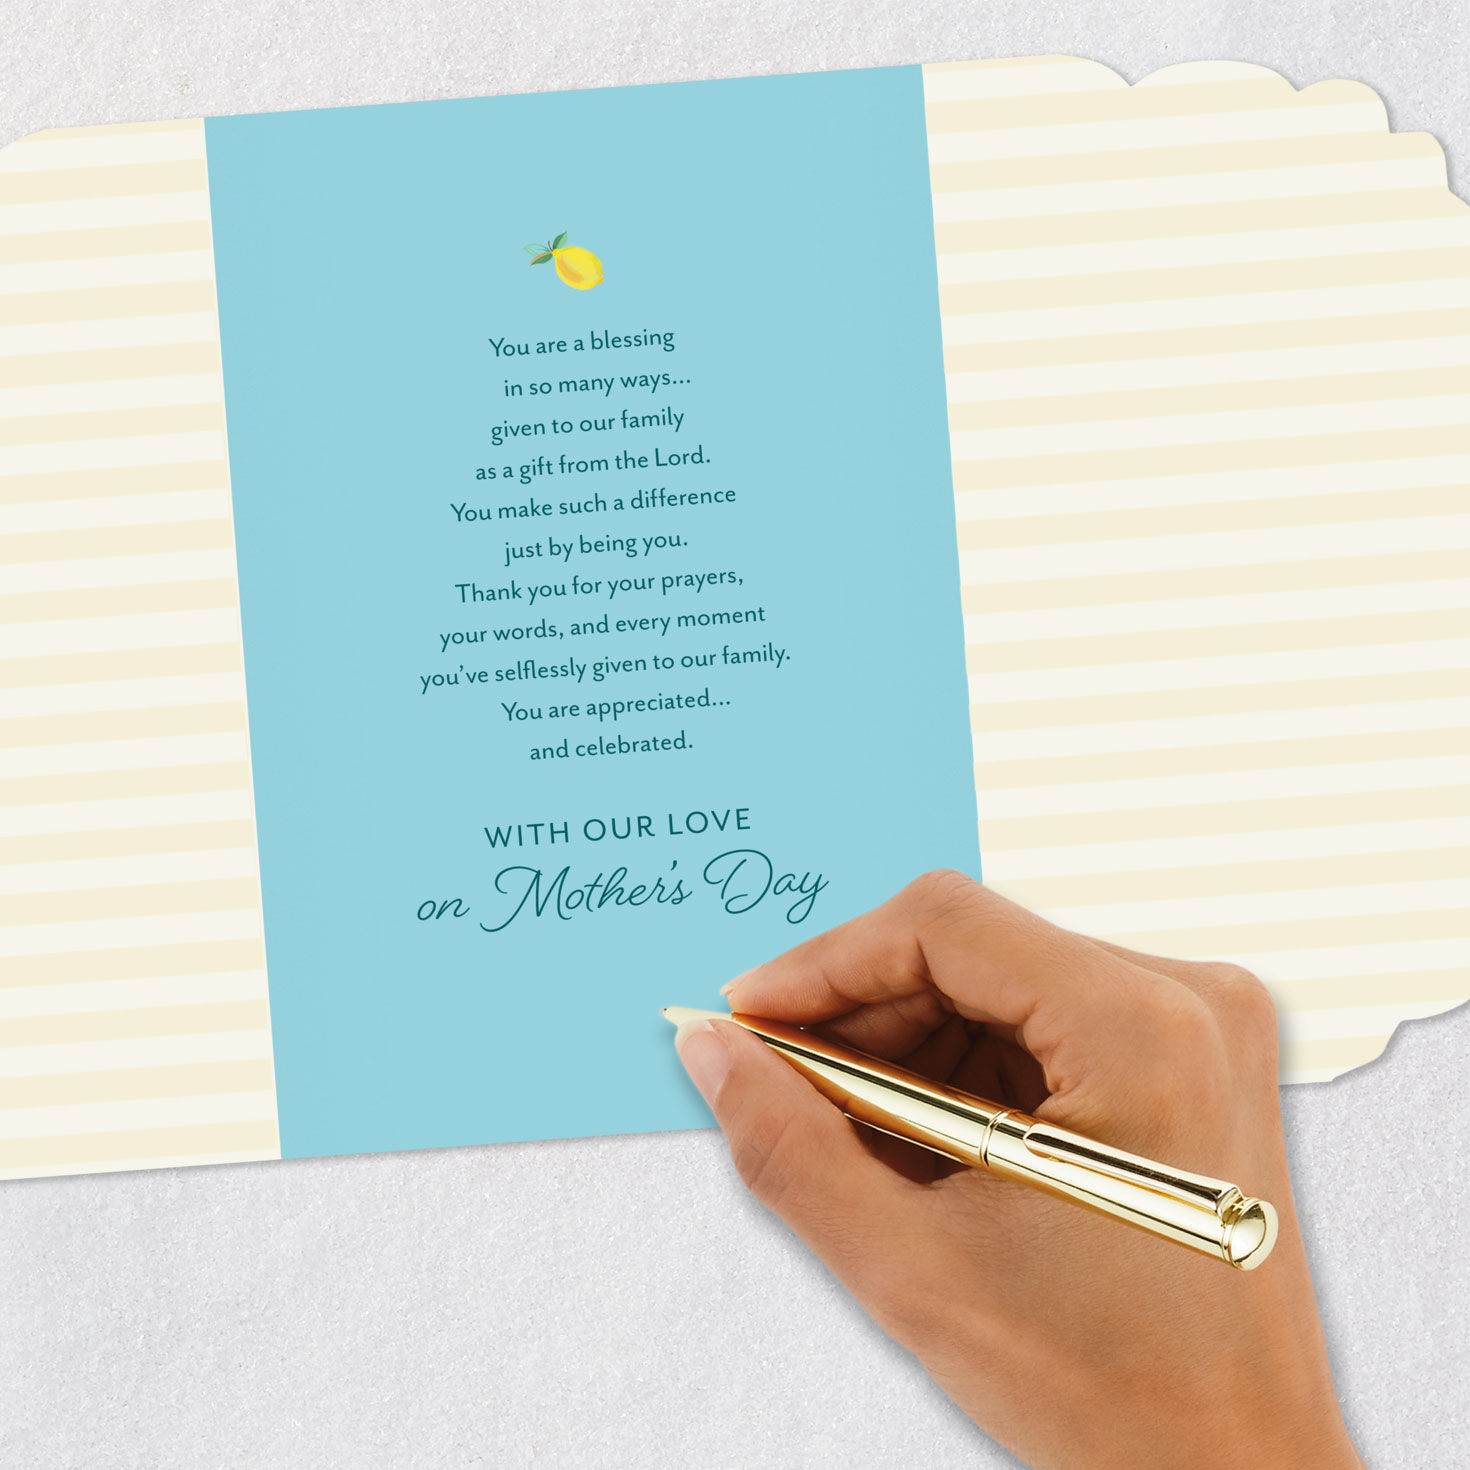 You are a blessing
in so many ways...
given to our family
as a gift from the Lord.
You make such a difference
just by being you.
Thank you for your prayers,
your words, and every moment
you've selflessly given to our family.
You are appreciated...
and celebrated.
WITH OUR LOVE
on Mother's Day